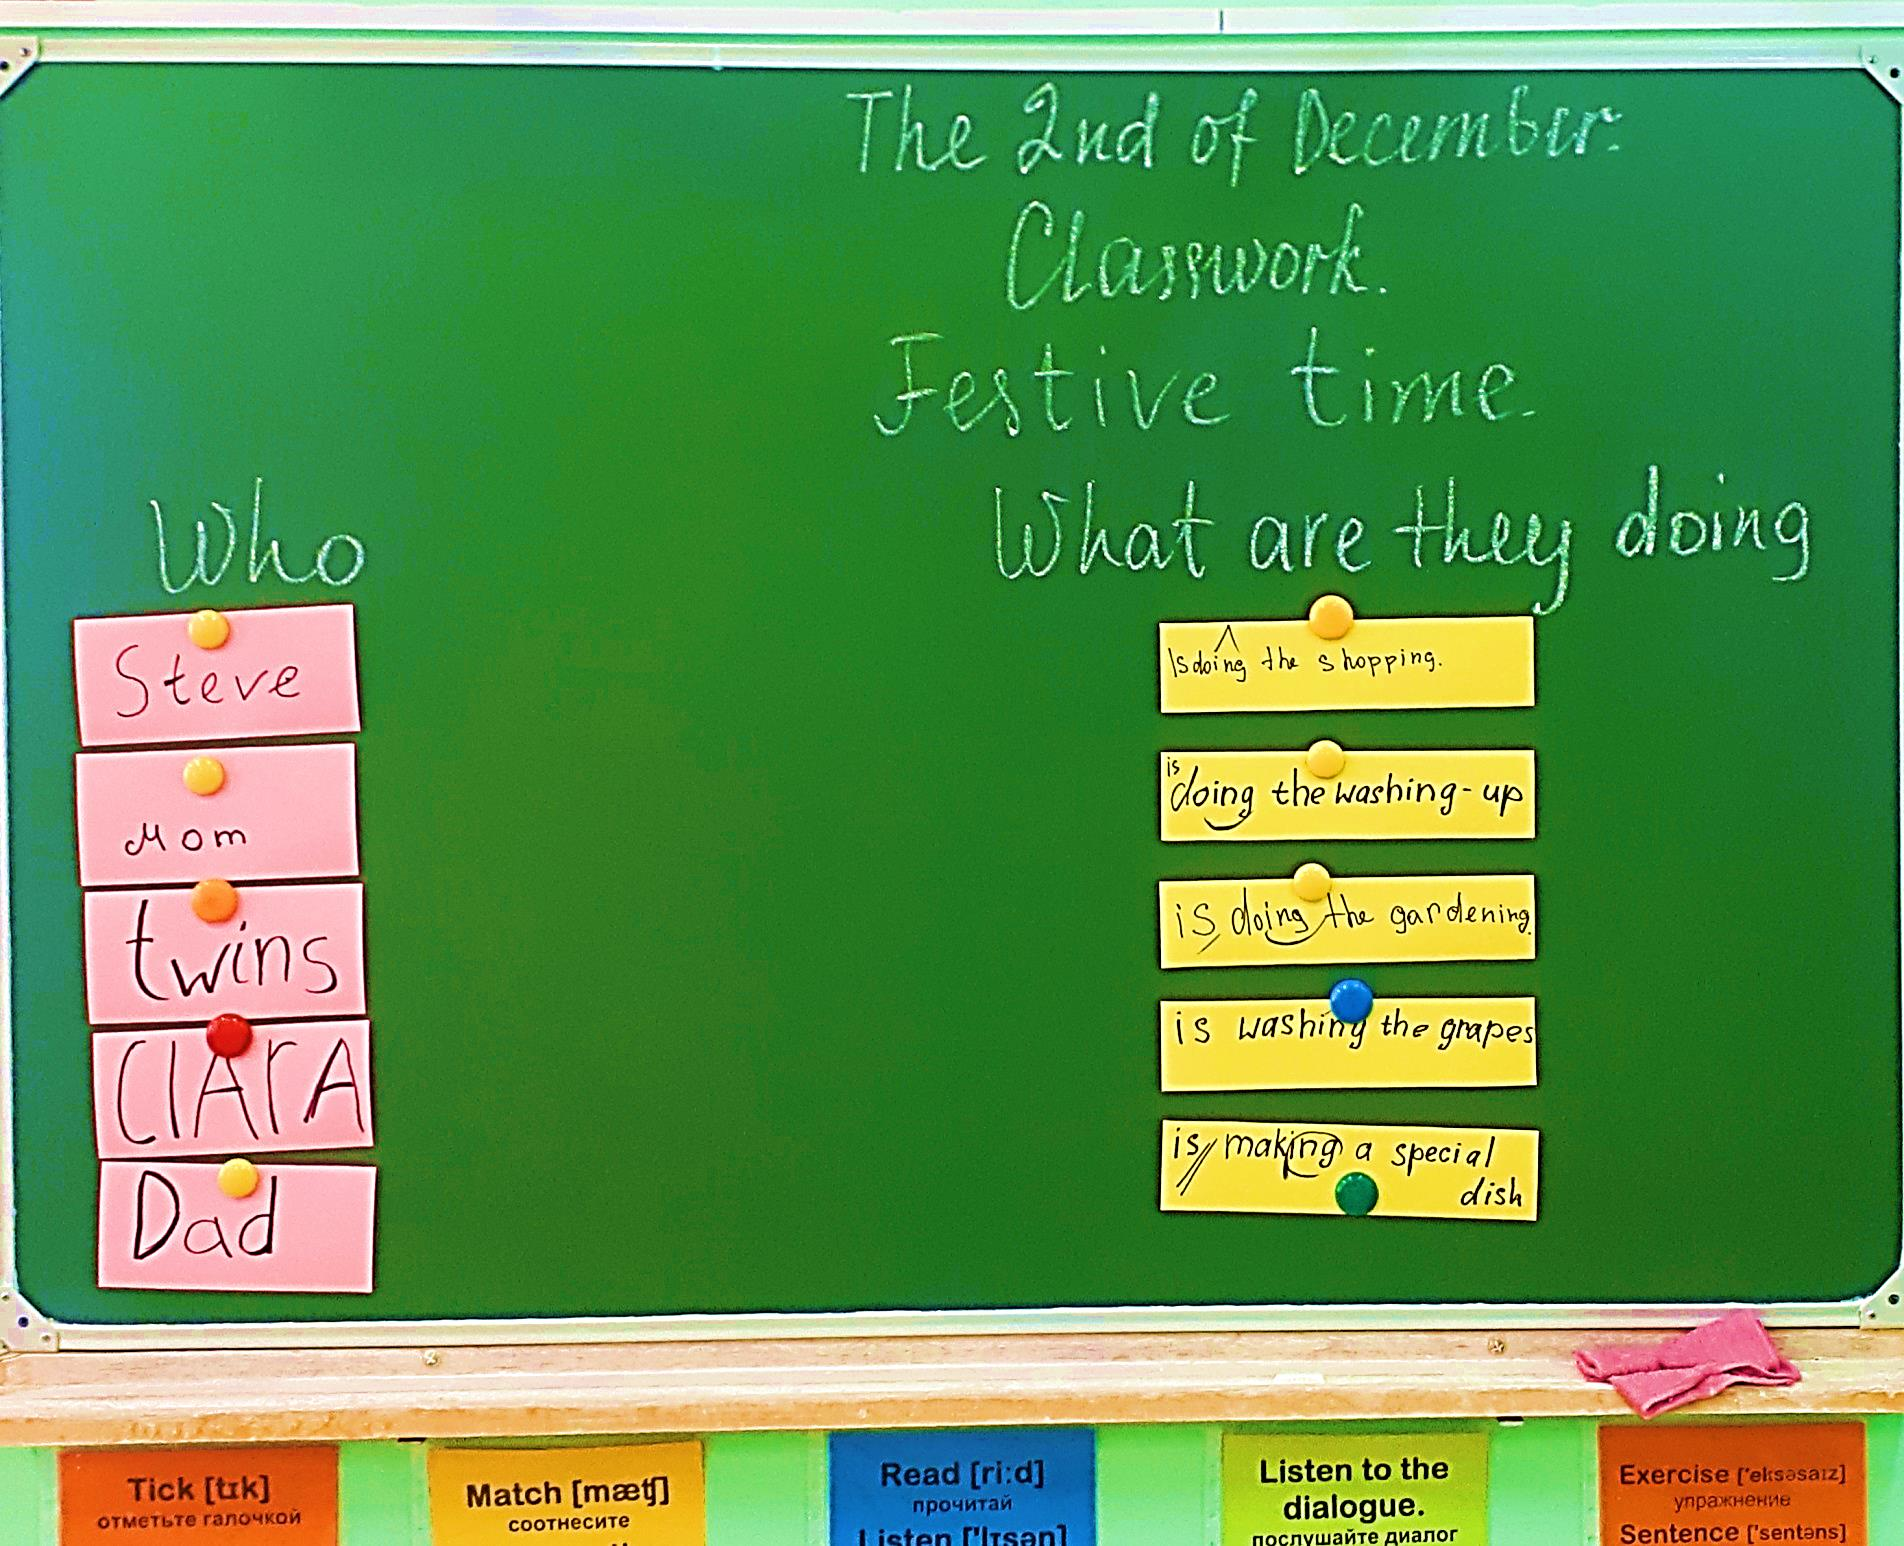 The 2nd of December.
Classwork.
Festive time.
Who
What are they doing
Steve
Mom
twins
ClArA
Dad
Is doing the shopping.
is doing the washing-up
is doing the gardening.
is washing the grapes
is making a special
dish
Tick [tɪk]
отметьте галочкой
Match [mæʧ]
соотнесите
Read [ri:d]
прочитай
Listen ['lɪsən]
Listen to the
dialogue.
послушайте диалог
Exercise ['eksəsaɪz]
упражнение
Sentence ['sentəns]